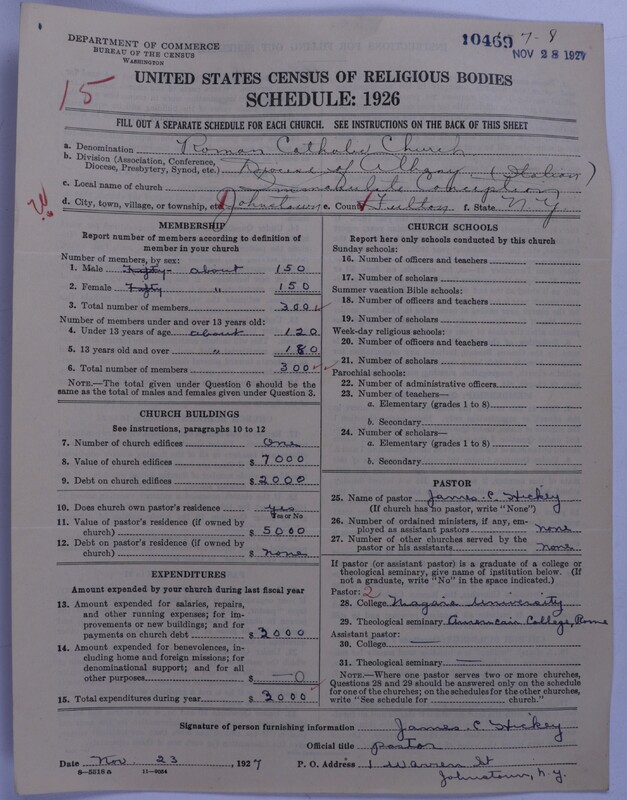 DEPARTMENT OF COMMERCE
BUREAU OF THE CENSUS
WASHINGTON
10469 7-8
NOV 28 1927
15
UNITED STATES CENSUS OF RELIGIOUS BODIES
SCHEDULE: 1926
FILL OUT A SEPARATE SCHEDULE FOR EACH CHURCH. SEE INSTRUCTIONS ON THE BACK OF THIS SHEET
a. Denomination Roman Catholic Church
b. Division (Association, Conference, Diocese, Presbytery, Synod, etc.) Diocese of Albany (Italian)
c. Local name of church Immaculate Conception
d. City, town, village, or township, etc. Johnstown e. County Fulton f. State N.Y
MEMBERSHIP
Report number of members according to definition of member in your church
Number of members, by sex:
1. Male Fifty about 150
2. Female Fifty " 150
3. Total number of members 300
Number of members under and over 13 years old:
4. Under 13 years of age about 120
5. 13 years old and over " 180
6. Total number of members 300
NOTE.—The total given under Question 6 should be the same as the total of males and females given under Question 3.
CHURCH BUILDINGS
See instructions, paragraphs 10 to 12
7. Number of church edifices One
8. Value of church edifices $ 7000
9. Debt on church edifices $ 2000
10. Does church own pastor's residence yes
Yes or No
11. Value of pastor's residence (if owned by church) $ 5000
12. Debt on pastor's residence (if owned by church) $ none
EXPENDITURES
Amount expended by your church during last fiscal year
13. Amount expended for salaries, repairs, and other running expenses; for improvements or new buildings; and for payments on church debt $ 3000
14. Amount expended for benevolences, including home and foreign missions; for denominational support; and for all other purposes $ —0
15. Total expenditures during year $ 3000
CHURCH SCHOOLS
Report here only schools conducted by this church
Sunday schools:
16. Number of officers and teachers
17. Number of scholars
Summer vacation Bible schools:
18. Number of officers and teachers
19. Number of scholars
Week-day religious schools:
20. Number of officers and teachers
21. Number of scholars
Parochial schools:
22. Number of administrative officers
23. Number of teachers—
a. Elementary (grades 1 to 8)
b. Secondary
24. Number of scholars—
a. Elementary (grades 1 to 8)
b. Secondary
PASTOR
25. Name of pastor James C Hickey
(If church has no pastor, write "None")
26. Number of ordained ministers, if any, employed as assistant pastors none
27. Number of other churches served by the pastor or his assistants none
If pastor (or assistant pastor) is a graduate of a college or theological seminary, give name of institution below. (If not a graduate, write "No" in the space indicated.)
Pastor: 2
28. College Niagara University
29. Theological seminary American College, Rome
Assistant pastor:
30. College —
31. Theological seminary —
NOTE.—Where one pastor serves two or more churches, Questions 28 and 29 should be answered only on the schedule for one of the churches; on the schedules for the other churches, write "See schedule for church."
Signature of person furnishing information James C. Hickey
Official title pastor
Date Nov. 23, 1927 P. O. Address 1 Warren St
Johnstown, N.Y.
8—5518a 11—9064